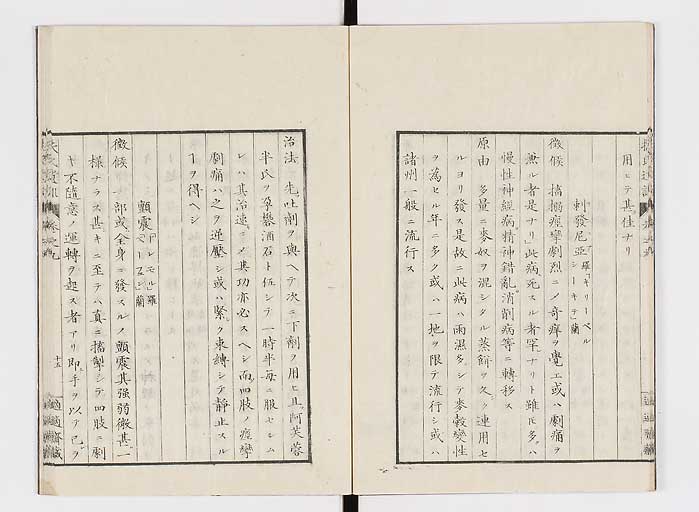 用ヒテ甚佳ナリ
刺發尼亞
羅「ギリーベル
シーキテ」蘭
徴候 搐搦痙攣劇烈ニメ奇痒ヲ覺エ或ハ劇痛ヲ
兼ル者是ナリ此病死スル者罕ナリト雖𪜈多ハ
慢性神經病精神錯亂消削病等ニ轉移ス
原由 多量ニ麥奴ヲ混シタル蒸餅ヲ久ク連用セ
ルヨリ發ス是故ニ此病ハ雨濕多シテ麥穀變性
ヲ為セル年ニ多ク或ハ一地ヲ限テ流行シ或ハ
諸州一般ニ流行ス
治法 先吐劑ヲ與ヘテ次ニ下劑ヲ用ヒ且阿芙蓉
半氏ヲ孕礬酒石ト伍シテ一時半毎ニ服セシム
レハ其治速ニメ其功亦必スヘシ而四肢ノ痙攣
劇痛ハ之ヲ逆壓シ或ハ緊ク束縛シテ靜止スル
ヿヲ得ヘシ
顫震
「テレモル」羅
蘭
徴候 一部或全身ニ發スルノ顫震其强弱微甚一
樣ナラス甚キニ至テハ真ニ搐掣シテ四肢ニ劇
キ不隨意ノ運轉ヲ起ス者アリ即手ヲ以テ己ヲ
十五